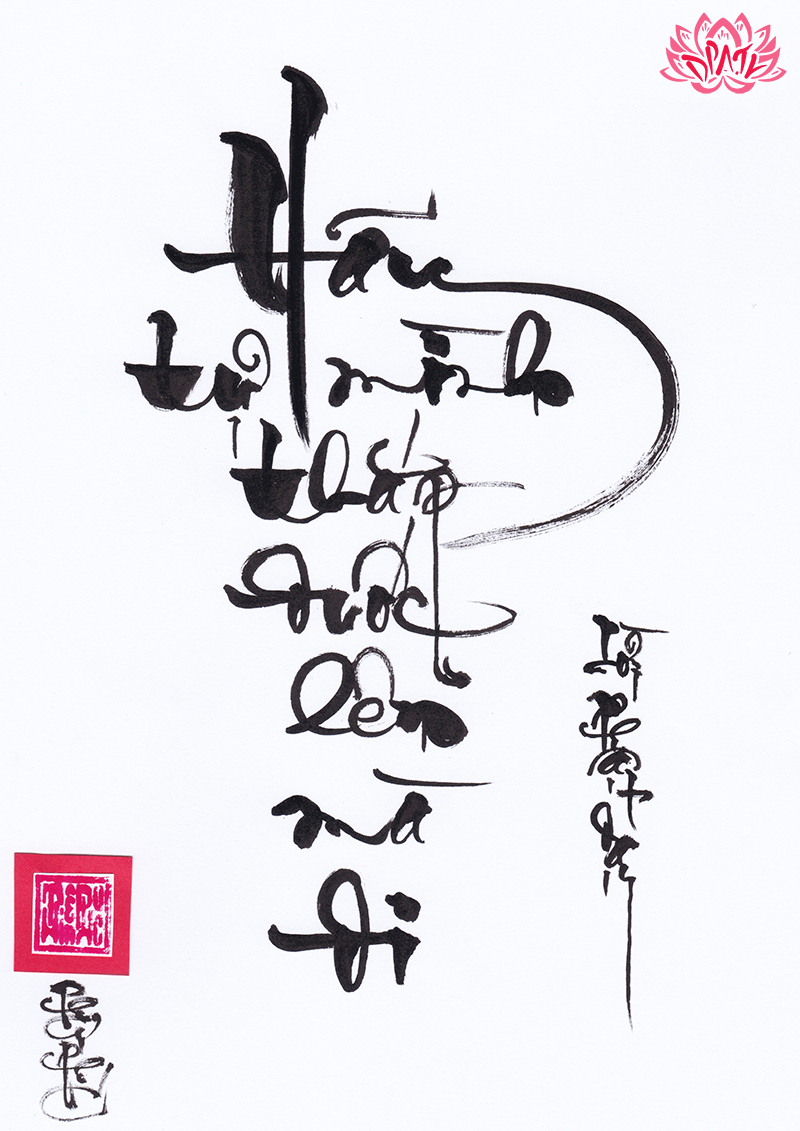 Hãy
tự mình
thắp
đuốc
lên
mà
đi
Lời Phật dạy